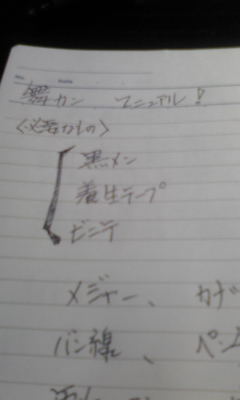 舞カン マニュアル!
<必要なもの>
黒メン
養生テープ
ビニテ
メジャー、カナ
バン線、ペン